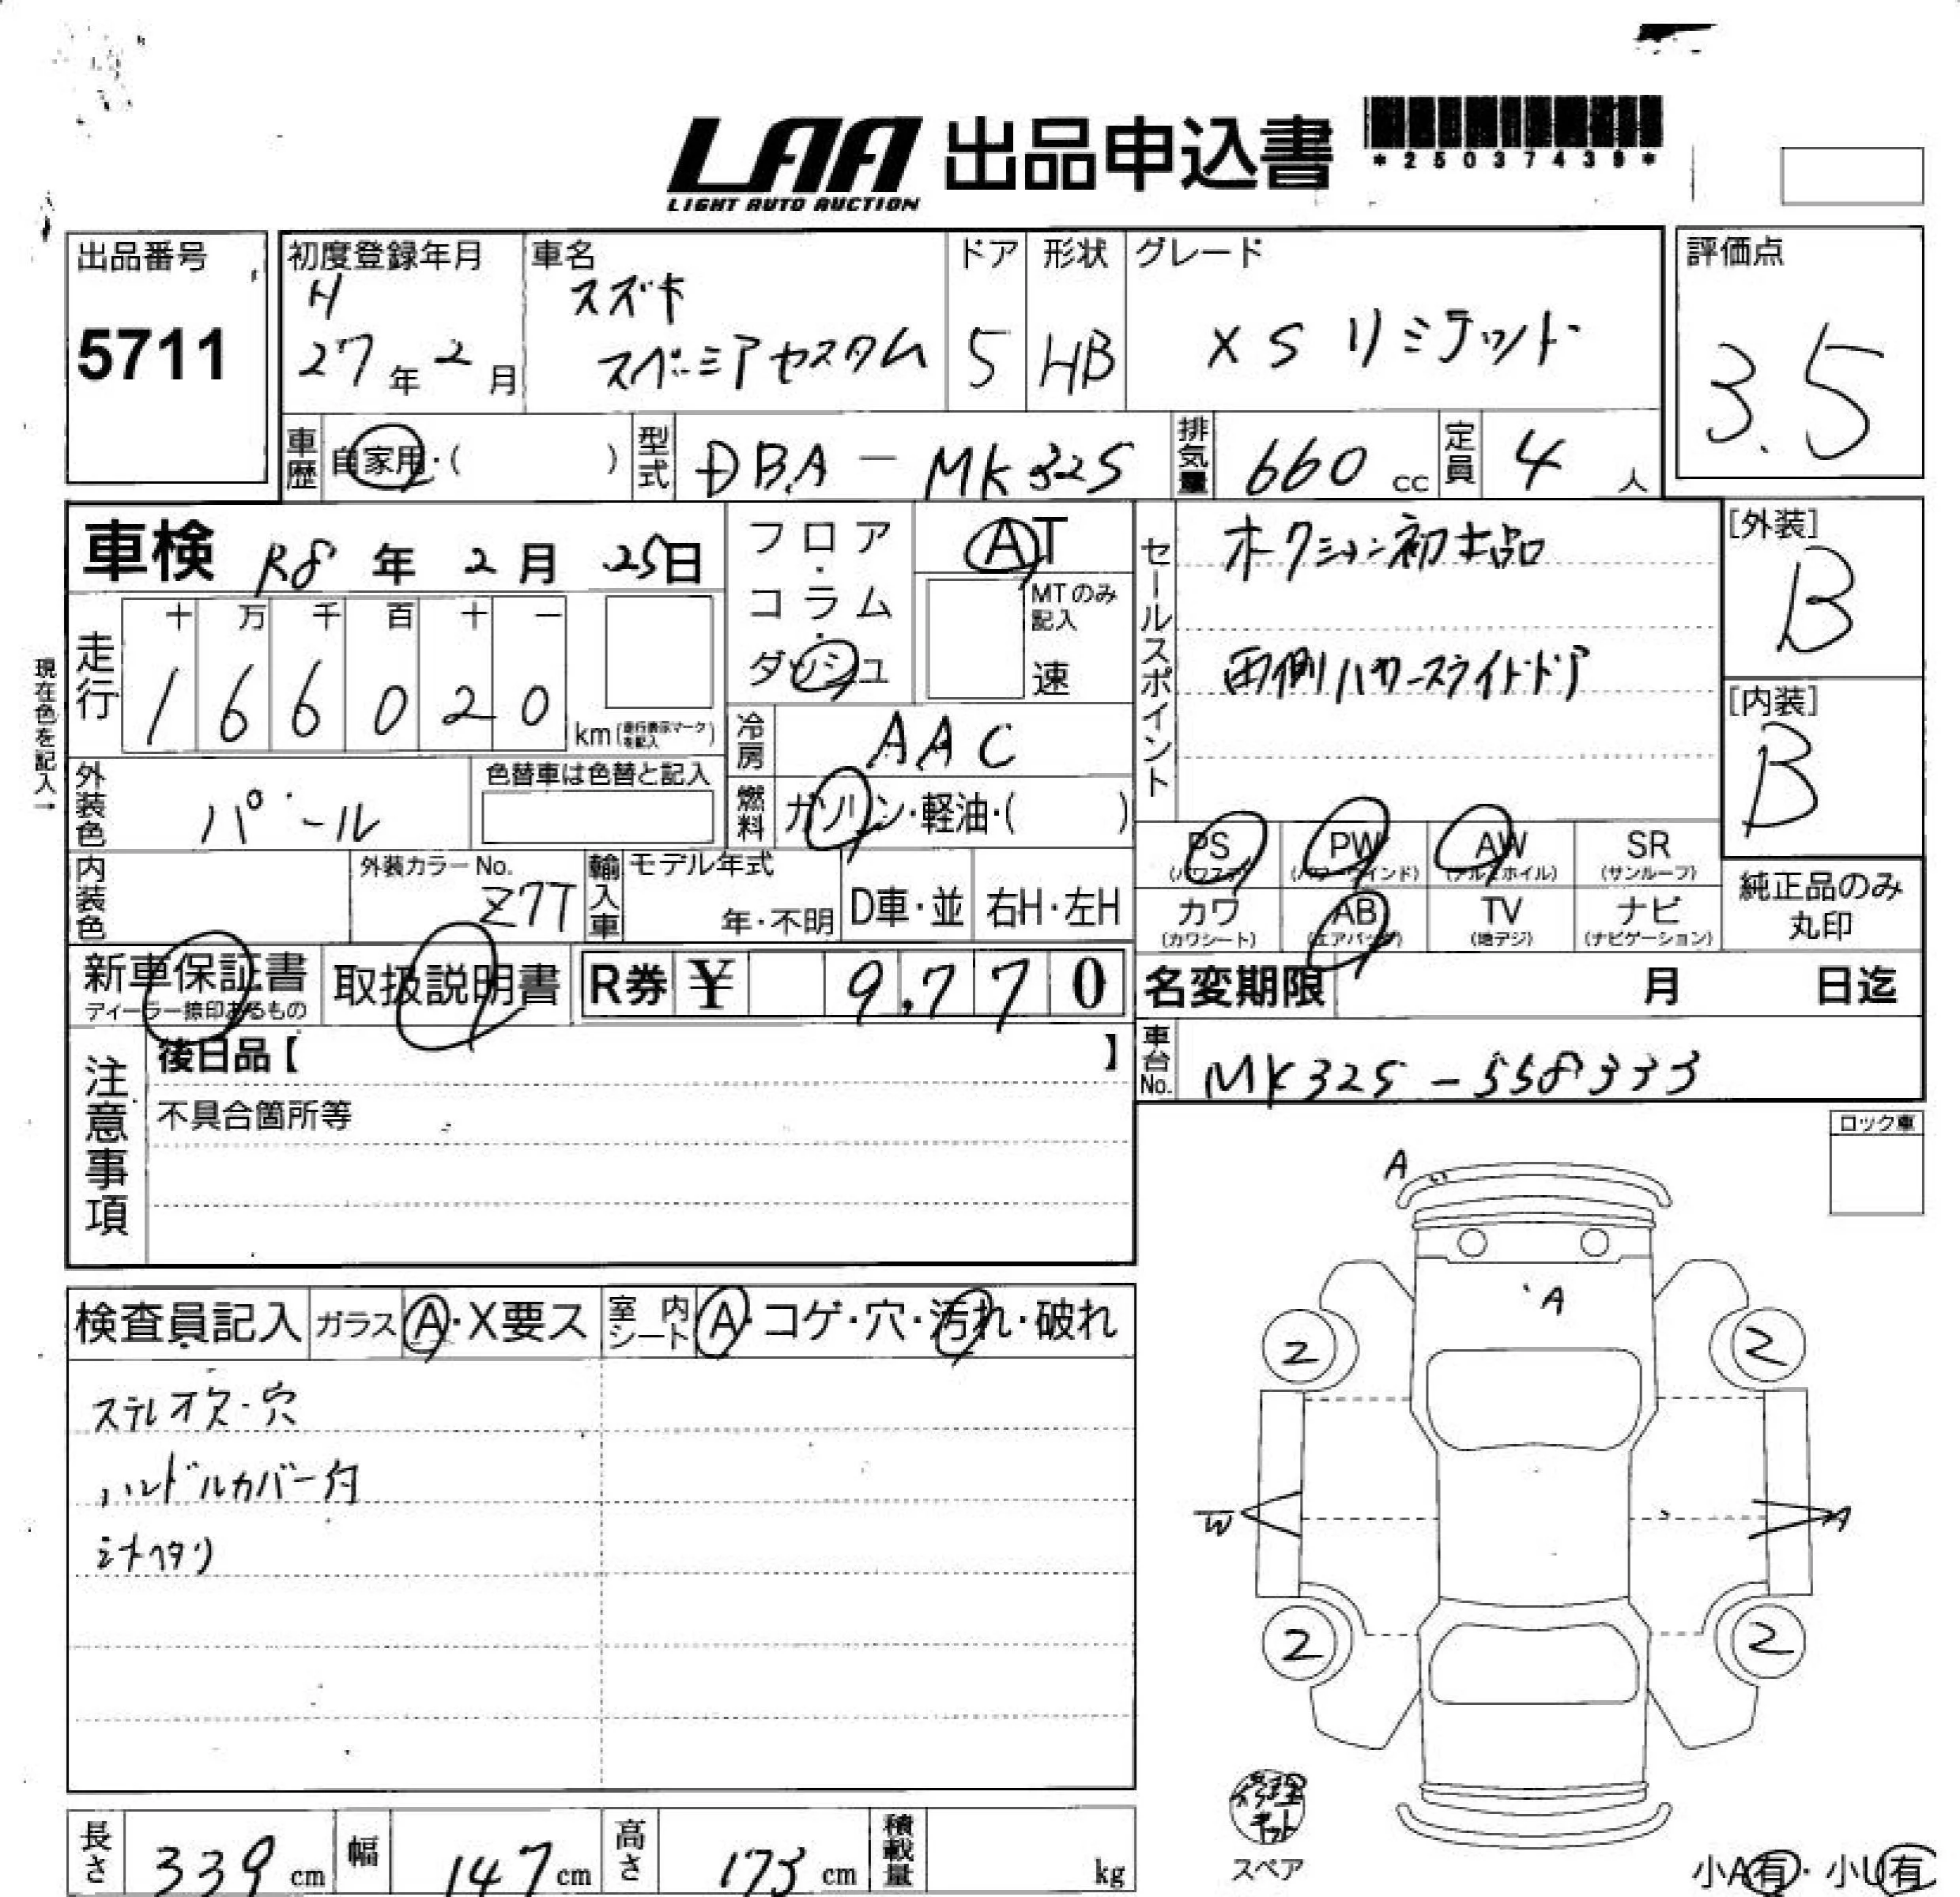 LAA 出品申込書
LIGHT AUTO AUCTION
*25037439*
出品番号
5711
初度登録年月
H
27年2月
車名
スズキ
スペーシアカスタム
ドア
5
形状
HB
グレード
XSリミテッド
評価点
3.5
車歴
自家用・( )
型式
DBA-MK32S
排気量
660 cc
定員
4 人
車検 R8年2月25日
走行
十 万 千 百 十 一
1 6 6 0 2 0
km(走行表示マークを記入)
現在色を記入→
フロア・コラム・ダッシュ
AT
MTのみ記入
速
冷房
AAC
燃料
ガソリン・軽油・( )
外装色
パール
色替車は色替と記入
内装色
外装カラーNo.
Z7T
輸入車
モデル年式
年・不明
D車・並
右H・左H
セールスポイント
オークション初出品
両側パワースライドドア
[外装]
B
[内装]
B
PS
(パワステ)
PW
(パワーウインド)
AW
(アルミホイル)
SR
(サンルーフ)
カワ
(カワシート)
AB
(エアバック)
TV
(地デジ)
ナビ
(ナビゲーション)
純正品のみ
丸印
新車保証書
ディーラー捺印あるもの
取扱説明書
R券 ¥ 9,770
名変期限 月 日迄
車台No.
MK32S-558333
注意事項
後日品【 】
不具合箇所等
ロック車
検査員記入
ガラス A・X要ス
室内シート A・コゲ・穴・汚れ・破れ
ステレオ欠・穴
ハンドルカバー付
シートヘタリ
A
A
2 2
W A
2 2
修理キット
スペア
小A有・小U有
長さ
339 cm
幅
147 cm
高さ
173 cm
積載量
kg